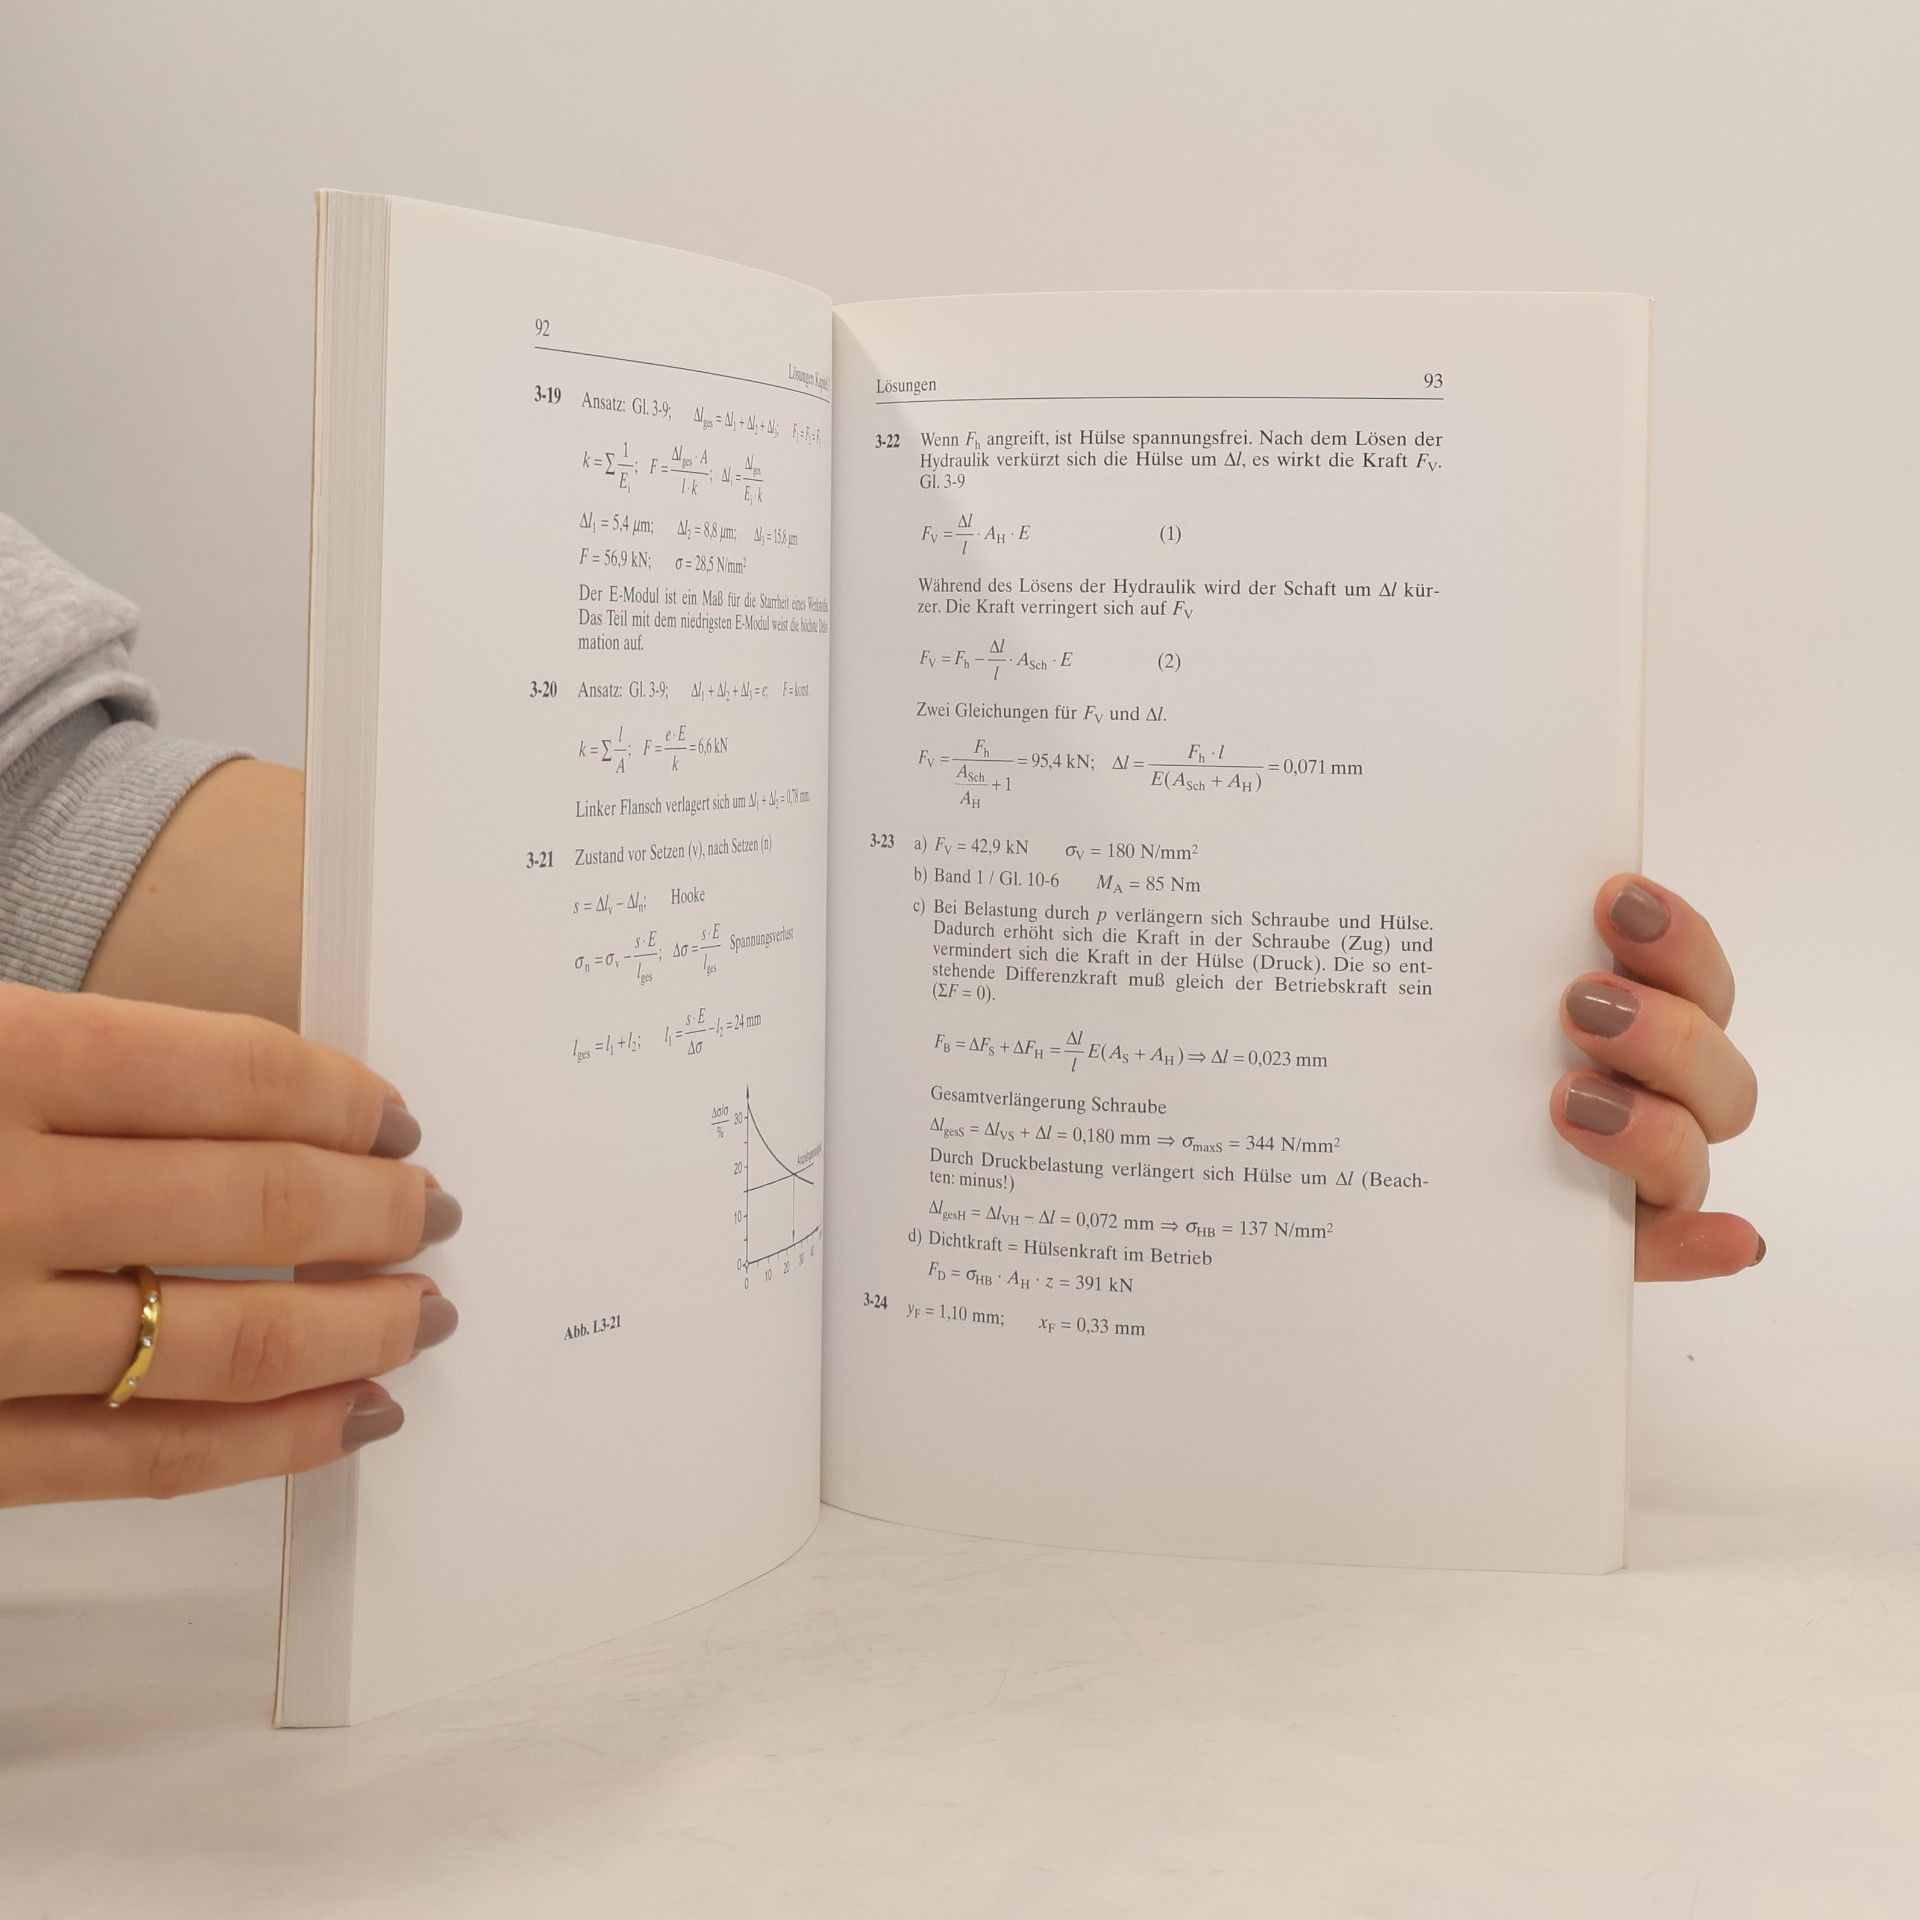 92
Lösungen
3-19 Ansatz: Gl. 3-9; Δl_ges = Δl_1 + Δl_2 + Δl_3; F_1 = F_2 = F_3
k = Σ 1/E_i; F = Δl_ges · A / l · k; Δl_i = Δl_ges / E_i · k
Δl_1 = 5,4 μm; Δl_2 = 8,8 μm; Δl_3 = 15,8 μm
F = 56,9 kN; σ = 28,5 N/mm²
Der E-Modul ist ein Maß für die Starrheit eines
Das Teil mit dem niedrigsten E-Modul weist die höchste
mation auf.
3-20 Ansatz: Gl. 3-9; Δl_1 + Δl_2 + Δl_3 = e; F = konst
k = Σ l/A; F = e · E / k = 6,6 kN
Linker Flansch verlagert sich um Δl_1 + Δl_2 = 0,78 mm
3-21 Zustand vor Setzen (v), nach Setzen (n)
s = Δl_v − Δl_n; Hooke
σ_n = σ_v − s · E / l_ges; Δσ = s · E / l_ges Spannungsverlust
l_ges = l_1 + l_2; l_1 = s · E / Δσ − l_2 = 24 mm
Δσ/σ
%
30
20
10
0
0 10 20 30 40
Abb. L3-21
Lösungen 93
3-22 Wenn F_h angreift, ist Hülse spannungsfrei. Nach dem Lösen der
Hydraulik verkürzt sich die Hülse um Δl, es wirkt die Kraft F_V.
Gl. 3-9
F_V = Δl/l · A_H · E (1)
Während des Lösens der Hydraulik wird der Schaft um Δl kür-
zer. Die Kraft verringert sich auf F_V
F_V = F_h − Δl/l · A_Sch · E (2)
Zwei Gleichungen für F_V und Δl.
F_V = F_h / (A_Sch/A_H + 1) = 95,4 kN; Δl = F_h · l / E(A_Sch + A_H) = 0,071 mm
3-23 a) F_V = 42,9 kN σ_V = 180 N/mm²
b) Band 1 / Gl. 10-6 M_A = 85 Nm
c) Bei Belastung durch p verlängern sich Schraube und Hülse.
Dadurch erhöht sich die Kraft in der Schraube (Zug) und
vermindert sich die Kraft in der Hülse (Druck). Die so ent-
stehende Differenzkraft muß gleich der Betriebskraft sein
(ΣF = 0).
F_B = ΔF_S + ΔF_H = Δl/l E(A_S + A_H) ⇒ Δl = 0,023 mm
Gesamtverlängerung Schraube
Δl_gesS = Δl_VS + Δl = 0,180 mm ⇒ σ_maxS = 344 N/mm²
Durch Druckbelastung verlängert sich Hülse um Δl (Beach-
ten: minus!)
Δl_gesH = Δl_VH − Δl = 0,072 mm ⇒ σ_HB = 137 N/mm²
d) Dichtkraft = Hülsenkraft im Betrieb
F_D = σ_HB · A_H · z = 391 kN
3-24 y_F = 1,10 mm; x_F = 0,33 mm